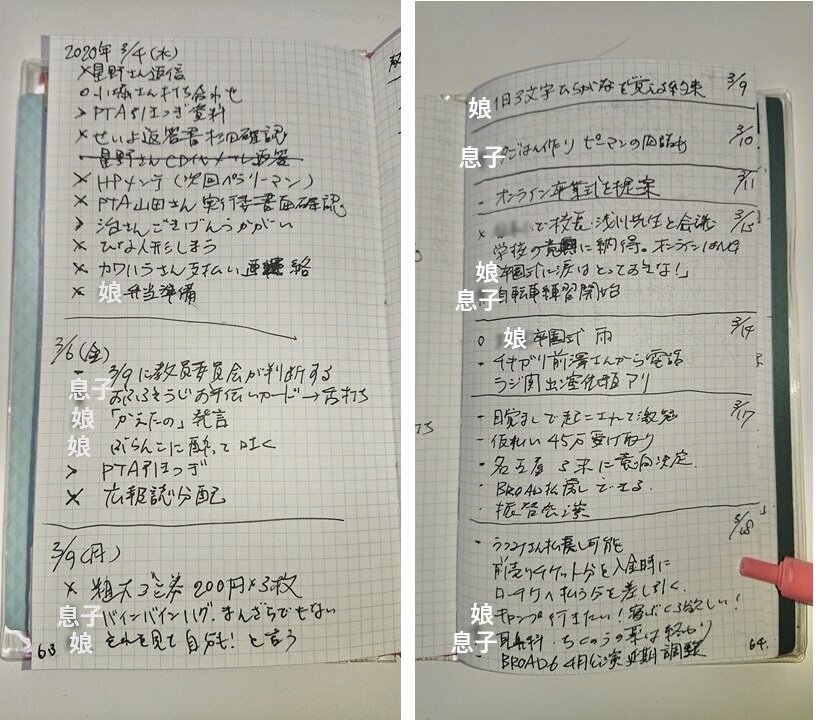 2020年 3/4(水)
×星野さん返信
○小塚さん打ち合わせ
> PTA引きつぎ資料
×せいよ返答書 確認
星野さん メール返答
× HPメンテ(次回ペラリーマン)
× PTA山田さん実行委書面確認
> 治さんごきげんうかがい
×ひな人形しまう
×カワハラさん支払い連絡
× 娘 弁当準備
3/6(金)
- 3/9に教育委員会が判断する
息子 おふろそうじお手伝いカード→舌打ち
娘 「かえたの」発言
娘 ぶらんこに酔って吐く
> PTA引きつぎ
× 広報誌分配
3/9(月)
× 粗大ゴミ券 200円×3枚
息子 バインバインハグ。まんざらでもない
娘 それを見て自分も!と言う
63
娘 1日3文字ひらがなを覚える約束 3/9
息子 ごはん作り ピーマンの肉詰め 3/10
- オンライン卒業式を提案 3/11
× で校長・浅川先生と会議 3/13
学校の意見に納得。オンライン
娘 「卒園式に涙はとっておくな!」
息子 自転車練習開始
○ 娘 卒園式 雨 3/14
- 前澤さんから電話
ラジ関出演依頼アリ
- 目覚ましで起こされて激怒 3/17
- 仮払い45万受け取り
- 名古屋 に意向決定.
- BROAD払戻しできる.
- 振替公演
3/18
- ラフコメさん払戻し可能
前売りチケット分を入金時に
ローチケへ払う分を差し引く.
娘 キャンプ行きたい!寝ぶくろ欲しい!
息子 耳鼻科.ちくのうの薬は終わり
- BROAD6 4月公演延期調整
64.